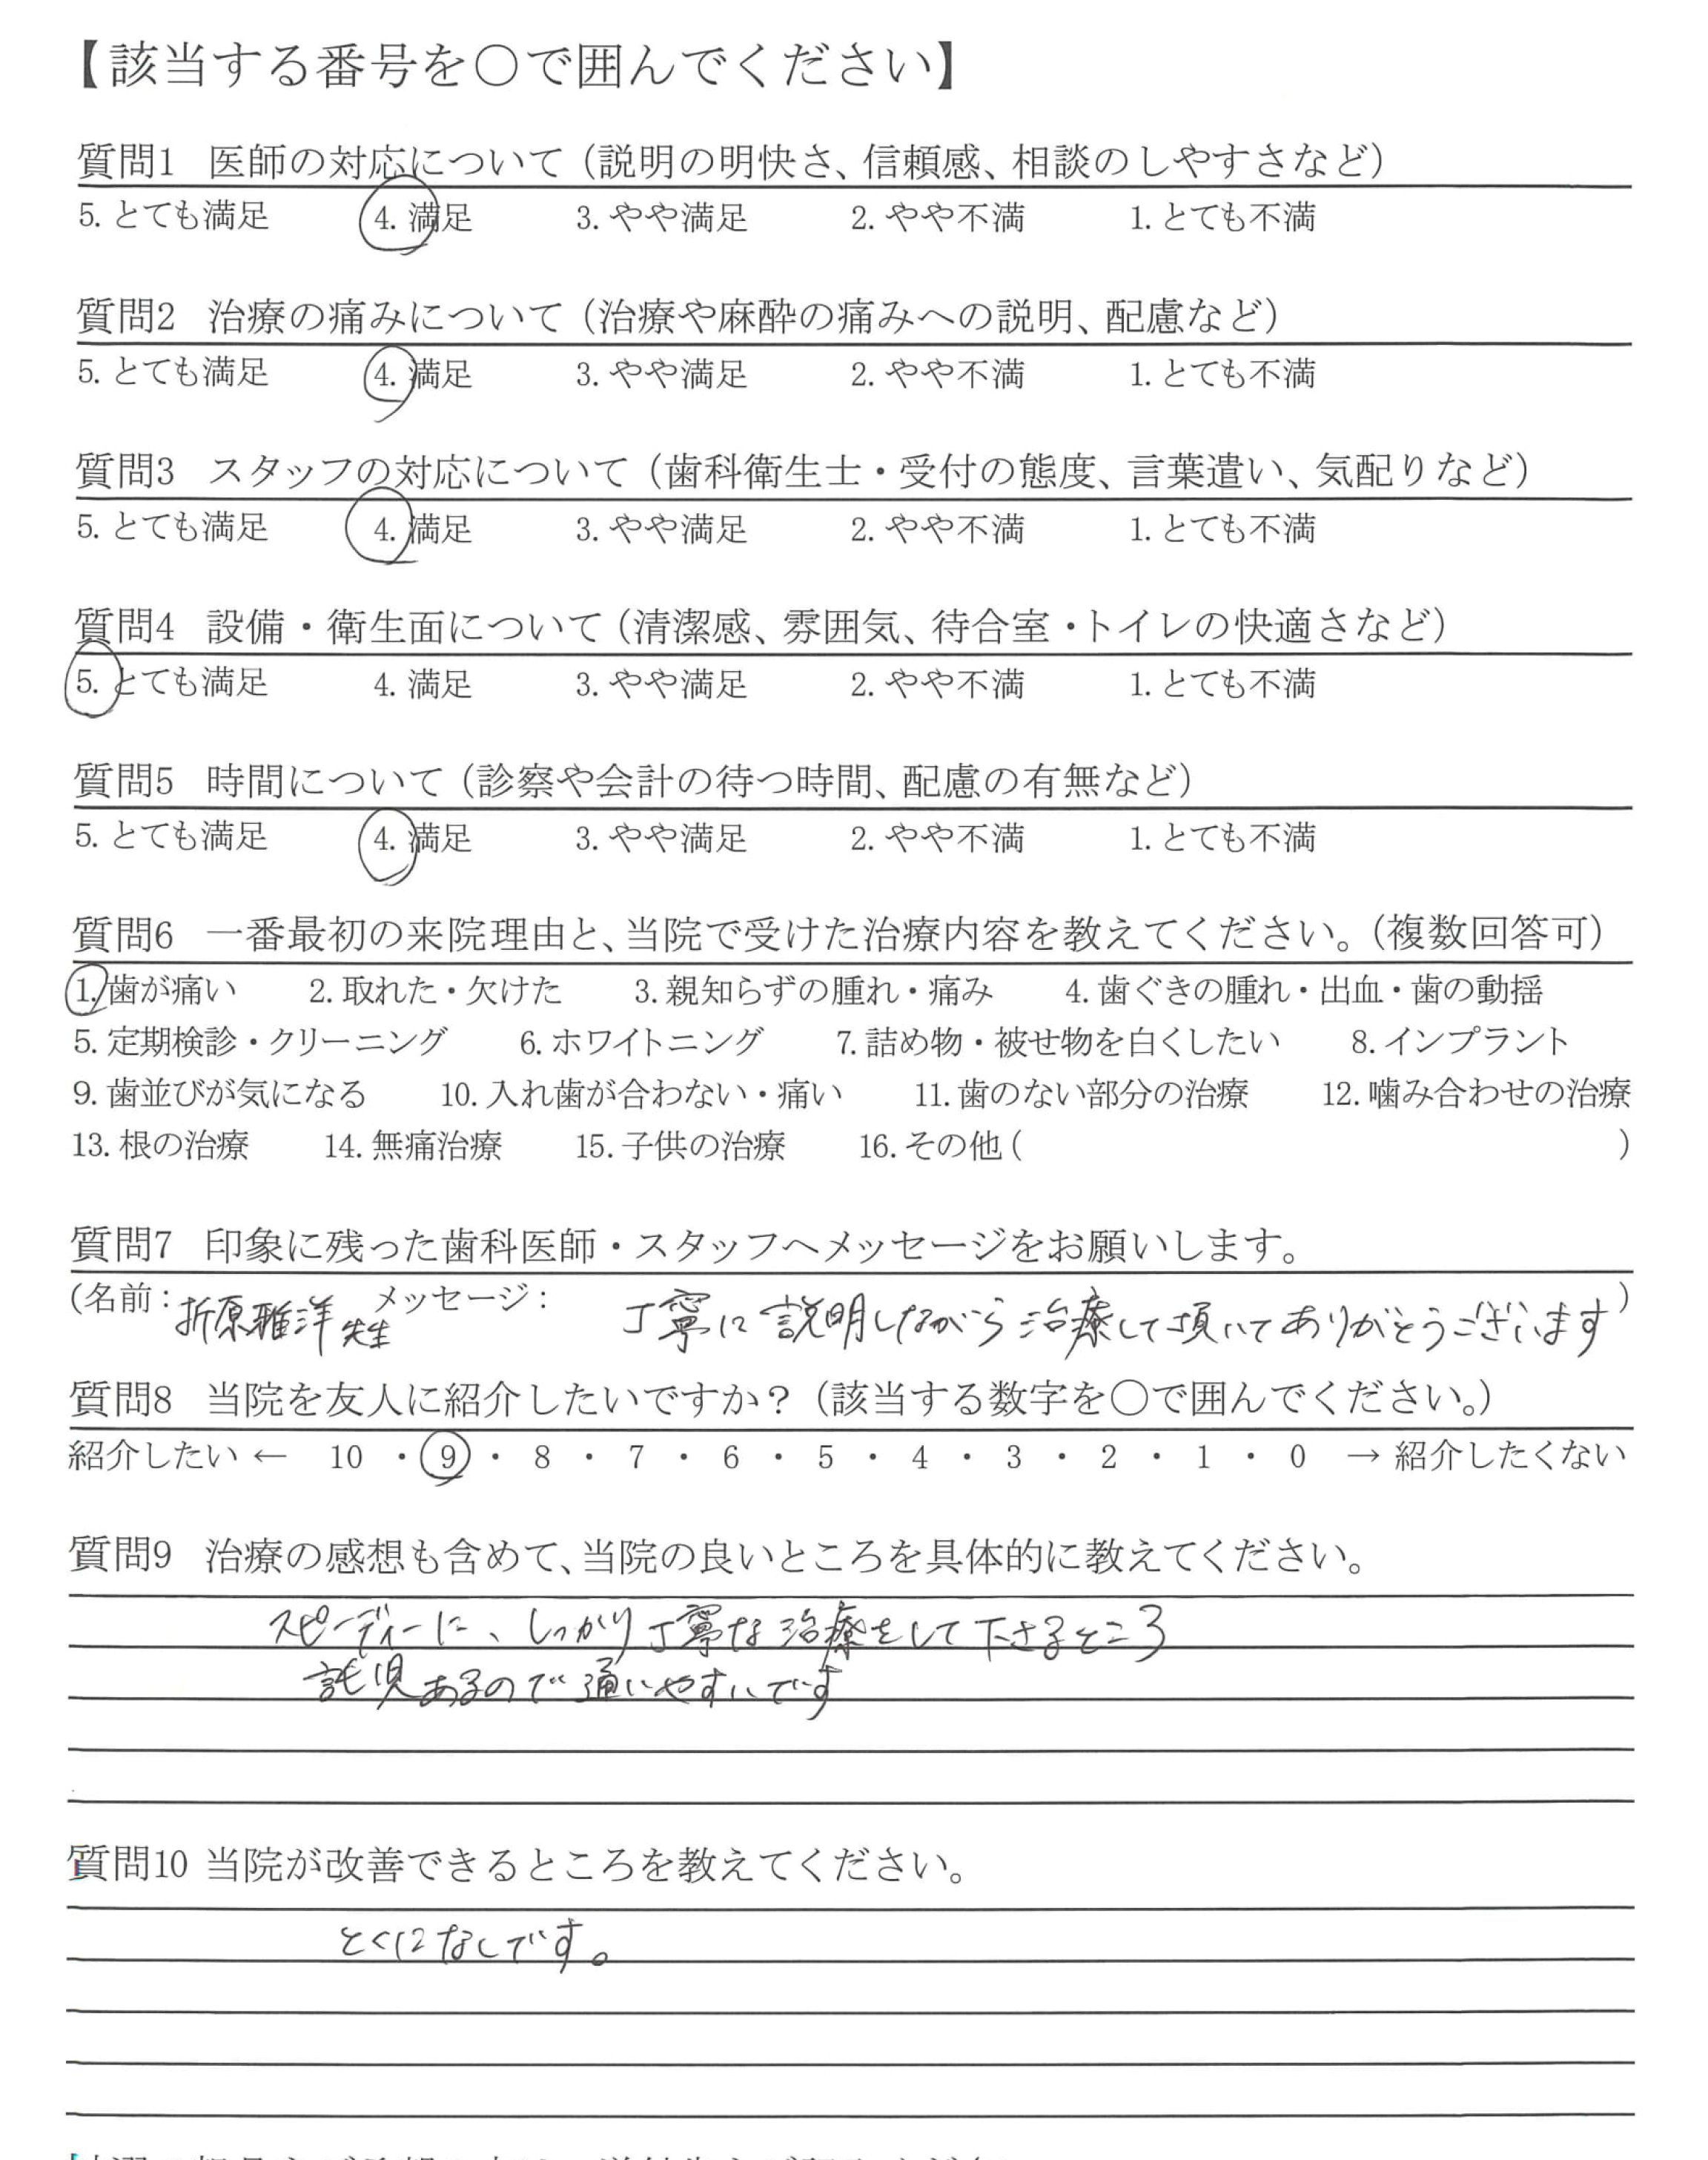 【該当する番号を〇で囲んでください】
質問1 医師の対応について（説明の明快さ、信頼感、相談のしやすさなど）
5. とても満足 4. 満足 3. やや満足 2. やや不満 1. とても不満
質問2 治療の痛みについて（治療や麻酔の痛みへの説明、配慮など）
5. とても満足 4. 満足 3. やや満足 2. やや不満 1. とても不満
質問3 スタッフの対応について（歯科衛生士・受付の態度、言葉遣い、気配りなど）
5. とても満足 4. 満足 3. やや満足 2. やや不満 1. とても不満
質問4 設備・衛生面について（清潔感、雰囲気、待合室・トイレの快適さなど）
5. とても満足 4. 満足 3. やや満足 2. やや不満 1. とても不満
質問5 時間について（診察や会計の待つ時間、配慮の有無など）
5. とても満足 4. 満足 3. やや満足 2. やや不満 1. とても不満
質問6 一番最初の来院理由と、当院で受けた治療内容を教えてください。（複数回答可）
1. 歯が痛い 2. 取れた・欠けた 3. 親知らずの腫れ・痛み 4. 歯ぐきの腫れ・出血・歯の動揺
5. 定期検診・クリーニング 6. ホワイトニング 7. 詰め物・被せ物を白くしたい 8. インプラント
9. 歯並びが気になる 10. 入れ歯が合わない・痛い 11. 歯のない部分の治療 12. 噛み合わせの治療
13. 根の治療 14. 無痛治療 15. 子供の治療 16. その他（ ）
質問7 印象に残った歯科医師・スタッフへメッセージをお願いします。
（名前：折原雅洋先生 メッセージ： 丁寧に説明しながら治療して頂いてありがとうございます）
質問8 当院を友人に紹介したいですか？（該当する数字を〇で囲んでください。）
紹介したい ← 10 ・ 9 ・ 8 ・ 7 ・ 6 ・ 5 ・ 4 ・ 3 ・ 2 ・ 1 ・ 0 → 紹介したくない
質問9 治療の感想も含めて、当院の良いところを具体的に教えてください。
スピーディーに、しっかり丁寧な治療をして下さるところ
託児あるので通いやすいです
質問10 当院が改善できるところを教えてください。
とくになしです。